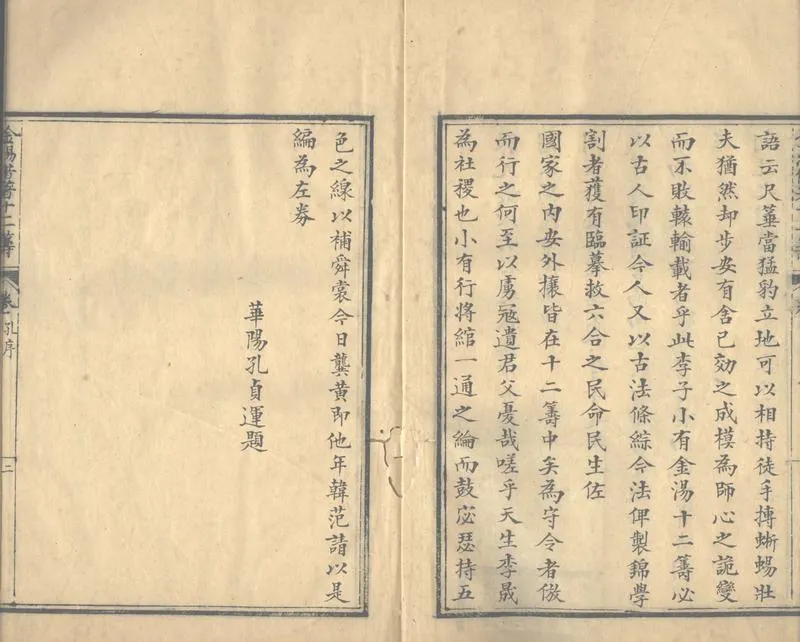 語云尺箠當猛豹立地可以相持徒手搏蜥蜴壯
夫猶然却步安有舍已効之成模為師心之詭變
而不敗轅輸載者乎此李子小有金湯十二籌必
以古人印証今人又以古法條綜今法俾製錦學
割者獲有臨摹救六合之民命民生佐
國家之內安外攘皆在十二籌中矣為守令者倣
而行之何至以虜寇遺君父憂哉嗟乎天生李晟
為社稷也小有行將綰一通之綸而鼓宓瑟持五
色之線以補舜裳今日龔黃即他年韓范請以是
編為左券
華陽孔貞運題
金湯借箸十二籌
卷一
孔序
二